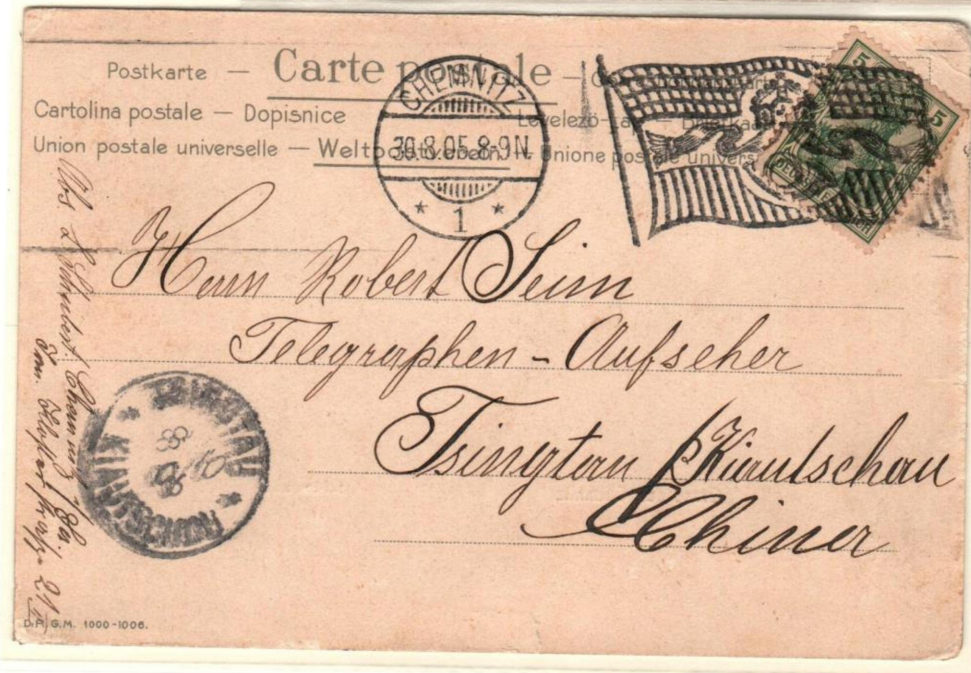 Postkarte — Carte postale —
Cartolina postale — Dopisnice Levelező-
Union postale universelle — Weltpostverein — Unione postale univers
CHEMNITZ
30.8.05.8-9N
* 1 *
5 5
Herrn Robert Seim
Telegraphen-Aufseher
Tsingtau /Kiautschau
China
TSINGTAU
* KIAUTSCHOU *
Abs.
Chemnitz
21
D.R.G.M. 1000-1006.